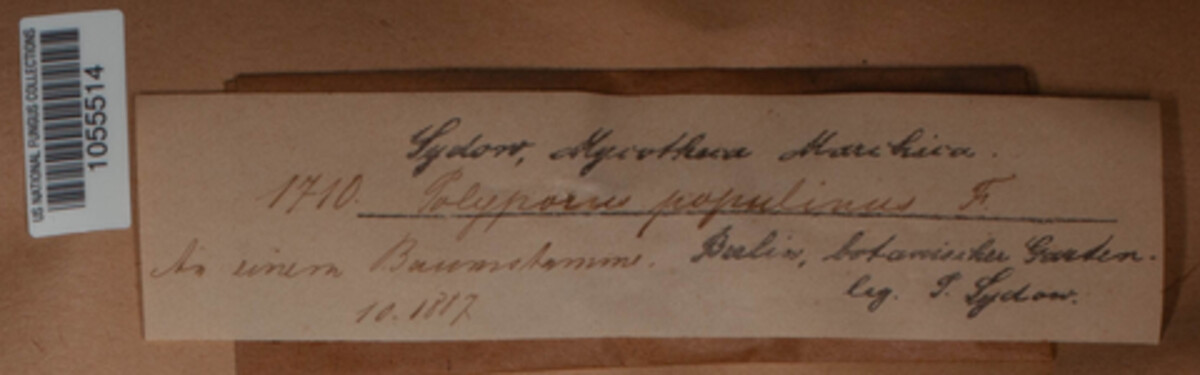 US NATIONAL FUNGUS COLLECTIONS
1055514
Sydow, Mycotheca Marchica.
1710. Polyporus populinus F.
An einem Baumstamme. Berlin, botanischer Garten.
10. 1887 leg. P. Sydow.